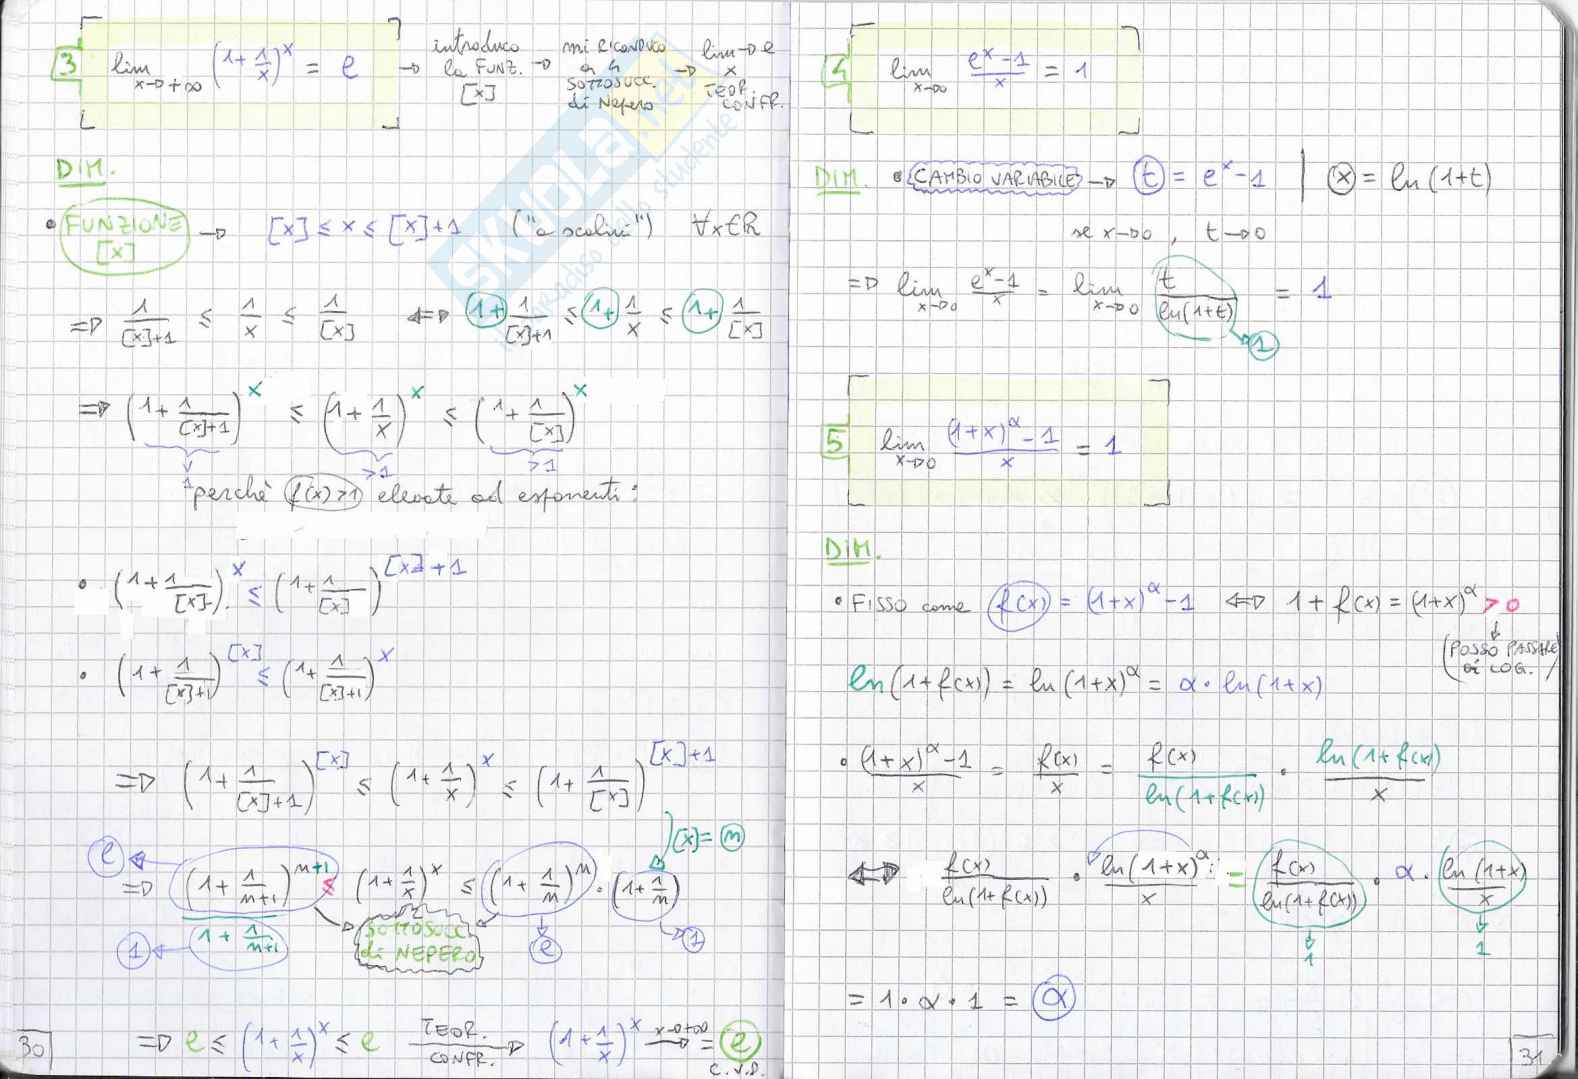 3 lim x→+∞ (1+1/x)^x = e → introduco la FUNZ. [x] → mi RICONDUCO a 4 SOTTOSUCC. di Nepero → lim → e x TEOR. CONFR.
DIM.
• FUNZIONE [x] → [x] ≤ x ≤ [x]+1 ("a scalini") ∀x∈R
⇒ 1/([x]+1) ≤ 1/x ≤ 1/[x] ⇔ 1+ 1/([x]+1) ≤ 1+ 1/x ≤ 1+ 1/[x]
⇒ (1+ 1/([x]+1))^x ≤ (1+ 1/x)^x ≤ (1+ 1/[x])^x
v 1 >1 >1
perchè f(x)>1 elevate ad esponenti:
• (1+ 1/[x])^x ≤ (1+ 1/[x])^([x]+1)
• (1+ 1/([x]+1))^[x] ≤ (1+ 1/([x]+1))^x
⇒ (1+ 1/([x]+1))^[x] ≤ (1+ 1/x)^x ≤ (1+ 1/[x])^([x]+1)
[x]= n
e ← ⇒ (1+ 1/(n+1))^(n+1) ≤ (1+ 1/x)^x ≤ (1+ 1/n)^n · (1+ 1/n)
1 ← 1+ 1/(n+1) SOTTOSUCC. di NEPERO e 1
⇒ e ≤ (1+ 1/x)^x ≤ e TEOR. CONFR. → (1+ 1/x)^x x→+∞ → = e
C.V.D.
30
SKUOLA.net
il paradiso dello studente
4 lim x→∞ (e^x-1)/x = 1
DIM. • CAMBIO VARIABILE → t = e^x-1 | x = ln(1+t)
se x→0 , t→0
⇒ lim x→0 (e^x-1)/x = lim x→0 t/ln(1+t) = 1
1
5 lim x→0 ((1+x)^α - 1)/x = 1
DIM.
• FISSO come f(x) = (1+x)^α - 1 ⇔ 1+f(x) = (1+x)^α > 0
(POSSO PASSARE ai LOG.)
ln(1+f(x)) = ln(1+x)^α = α · ln(1+x)
• ((1+x)^α - 1)/x = f(x)/x = f(x)/ln(1+f(x)) · ln(1+f(x))/x
⇔ f(x)/ln(1+f(x)) · ln(1+x)^α/x = f(x)/ln(1+f(x)) · α · ln(1+x)/x
1 1
= 1 · α · 1 = α
31